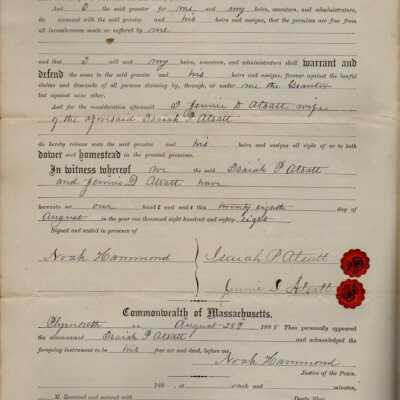 And I do covenant with the said grantee for me and my heirs, executors, and administrators,
covenant with the said grantee and his heirs and assigns, that the premises are free from
all incumbrances made or suffered by me
and that I will and my heirs, executors, and administrators shall warrant and
defend the same to the said grantee and his heirs and assigns forever against the lawful
claims and demands of all persons claiming by, through, or under me the Grantor
but against none other.
And for the consideration aforesaid I Jennie D Atsatt wife
of the aforesaid Isaiah P Atsatt
do hereby release unto the said grantee and his heirs and assigns all right of or to both
dower and homestead in the granted premises.
In witness whereof we the said Isaiah P Atsatt
and Jennie D Atsatt have
hereunto set our hands and seals this twenty eighth day of
August in the year one thousand eight hundred and eighty eight
Signed and sealed in presence of
Noah Hammond
Isaiah P Atsatt
Jennie D Atsatt
Commonwealth of Massachusetts.
Plymouth ss August 28th 1888 Then personally appeared
the above-named Isaiah P Atsatt and acknowledged the
foregoing instrument to be his free act and deed, before me,
Noah Hammond
Justice of the Peace.
188 , at o'clock and minutes,
M. Received and entered with